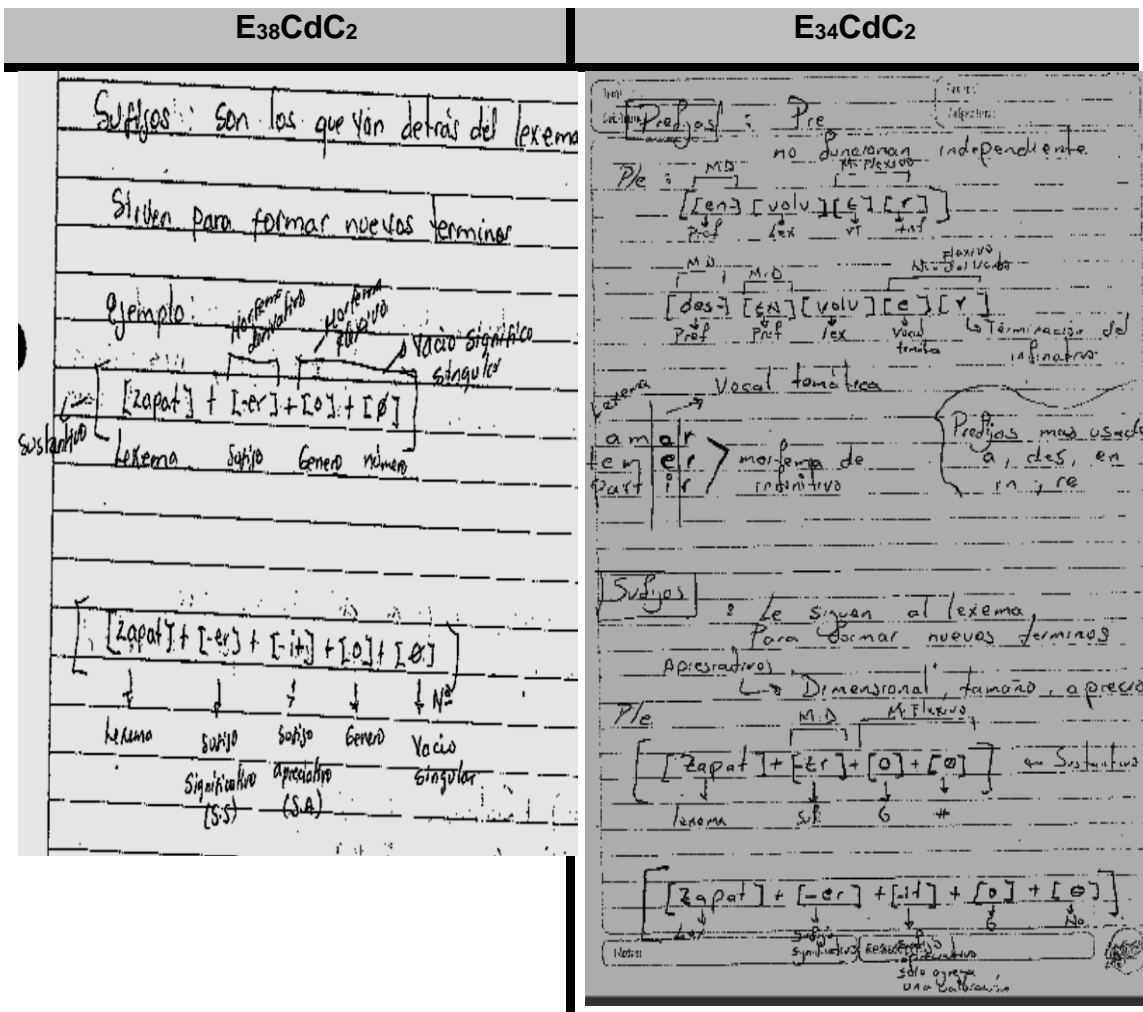 E38CdC2
E34CdC2
Sufijos: Son los que van detrás del lexema
Sirven para formar nuevos terminos
Ejemplo:
Morfema derivativo
Morfema flexivo
Vacio significa singular
[zapat] + [-er] + [o] + [ø]
Sustantivo
Lexema Sufijo Genero número
[zapat] + [-er] + [-it] + [o] + [ø]
Nº
Lexema Sufijo Sufijo Genero Vacio
Significativo apreciativo Singular
(S.S) (S.A)
Prefijos : Pre
no funcionan independiente
P/e : M.D M. Flexivo
[[en-] [volv] [e] [r]]
Pref Lex VT Inf
M.D M.D Flexivo
[des-] [en] [volv] [e] [r]
Pref Pref lex Vocal temática
Terminación del infinativo
Lexema
Vocal tomática
am a r
tem e r
part i r
morfema de infinitivo
Prefijos mas usado
a, des, en
in, re
Sufijos : Le siguen al lexema
Para formar nuevos terminos
Dimensional, tamaño, aprecio
P/e M.D M. Flexivo
[[zapat] + [-er] + [o] + [ø]] Sustantivo
lexema Suf G #
[[zapat] + [-er] + [-it] + [o] + [ø]]
Lex Sufijo significativo G No
Notas:
solo agrega
una valoración